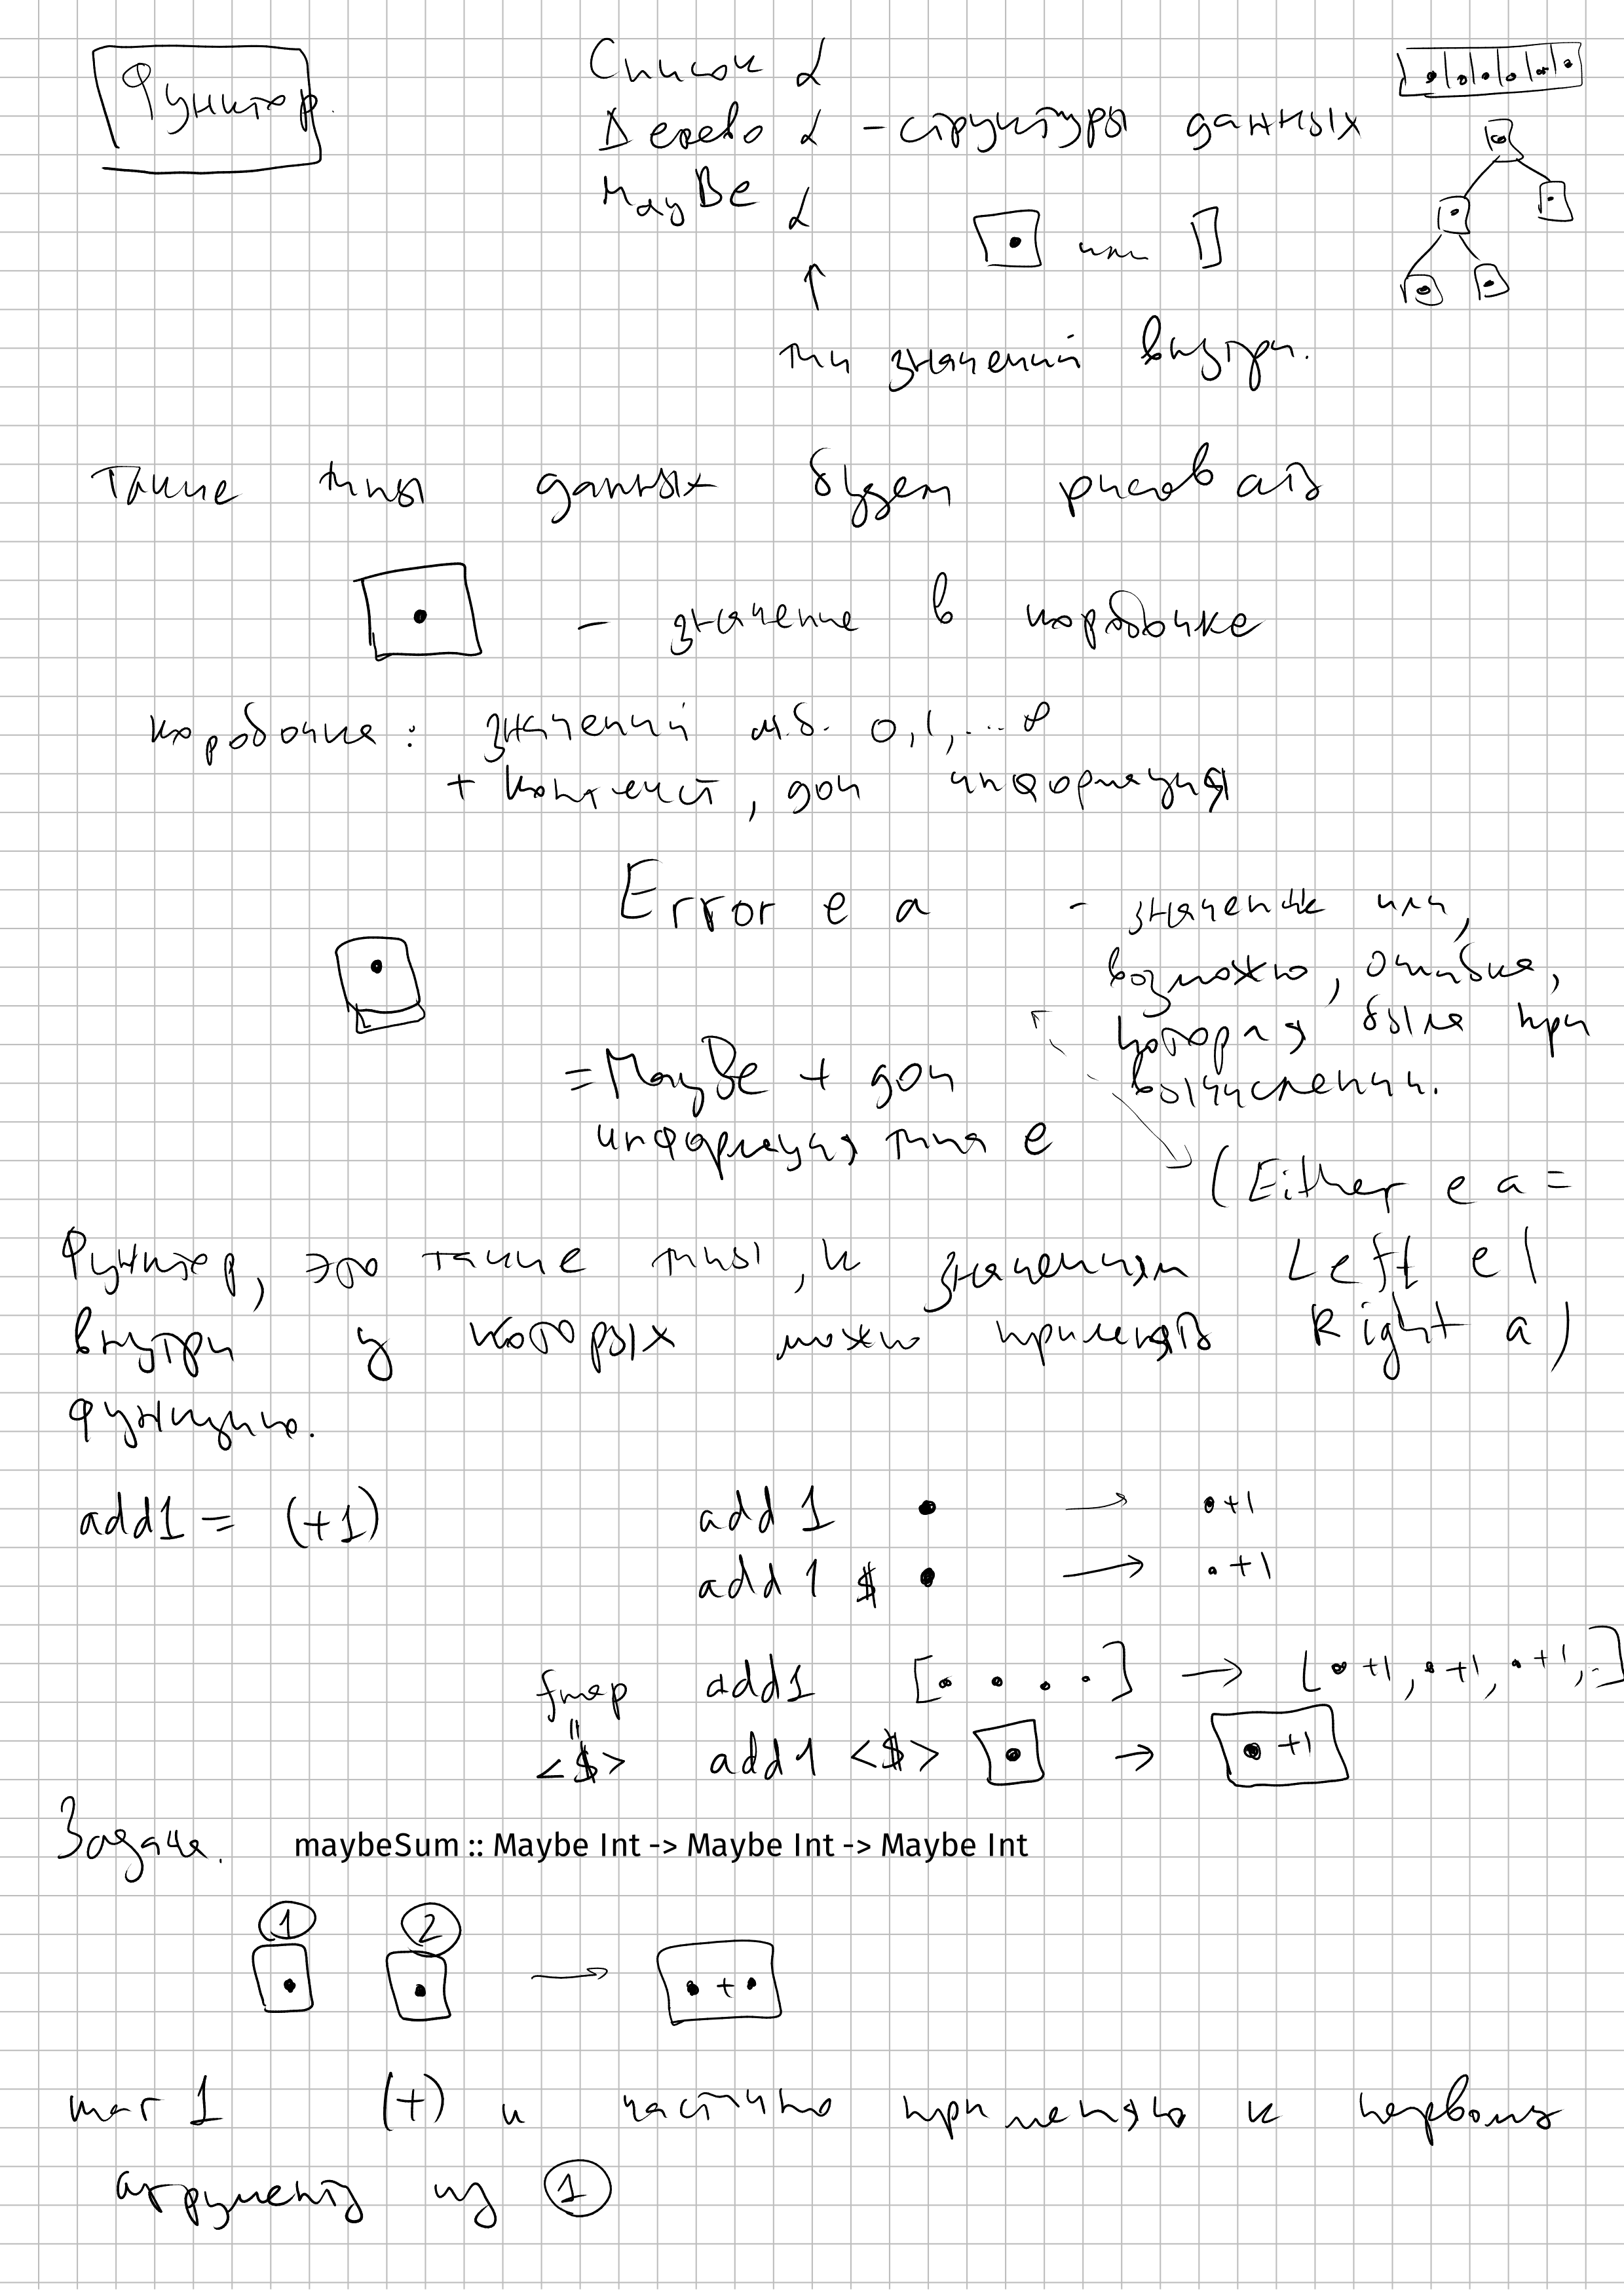 Функтор.
Список α
Дерево α - структуры данных
MayBe α
или
↑
тип значений внутри.
Такие типы данных будем рисовать
- значение в коробочке
коробочка: значений м.б. 0,1,...∞
+ контекст, доп информация
Error e a - значение или,
возможно, ошибка,
которая была при
вычислении.
= MayBe + доп
информация типа e
(Either e a =
Left e |
Right a)
Функтор, это такие типы, к значениям
внутри у которых можно применять
функцию.
add1 = (+1)
add 1 • → •+1
add 1 $ • → •+1
fmap add1 [• • • •] → [•+1, •+1, •+1, .]
=
<$> add1 <$> • → •+1
Задача. maybeSum :: Maybe Int -> Maybe Int -> Maybe Int
1 2
• • → • + •
шаг 1 (+) и частично применяю к первому
аргументу из 1